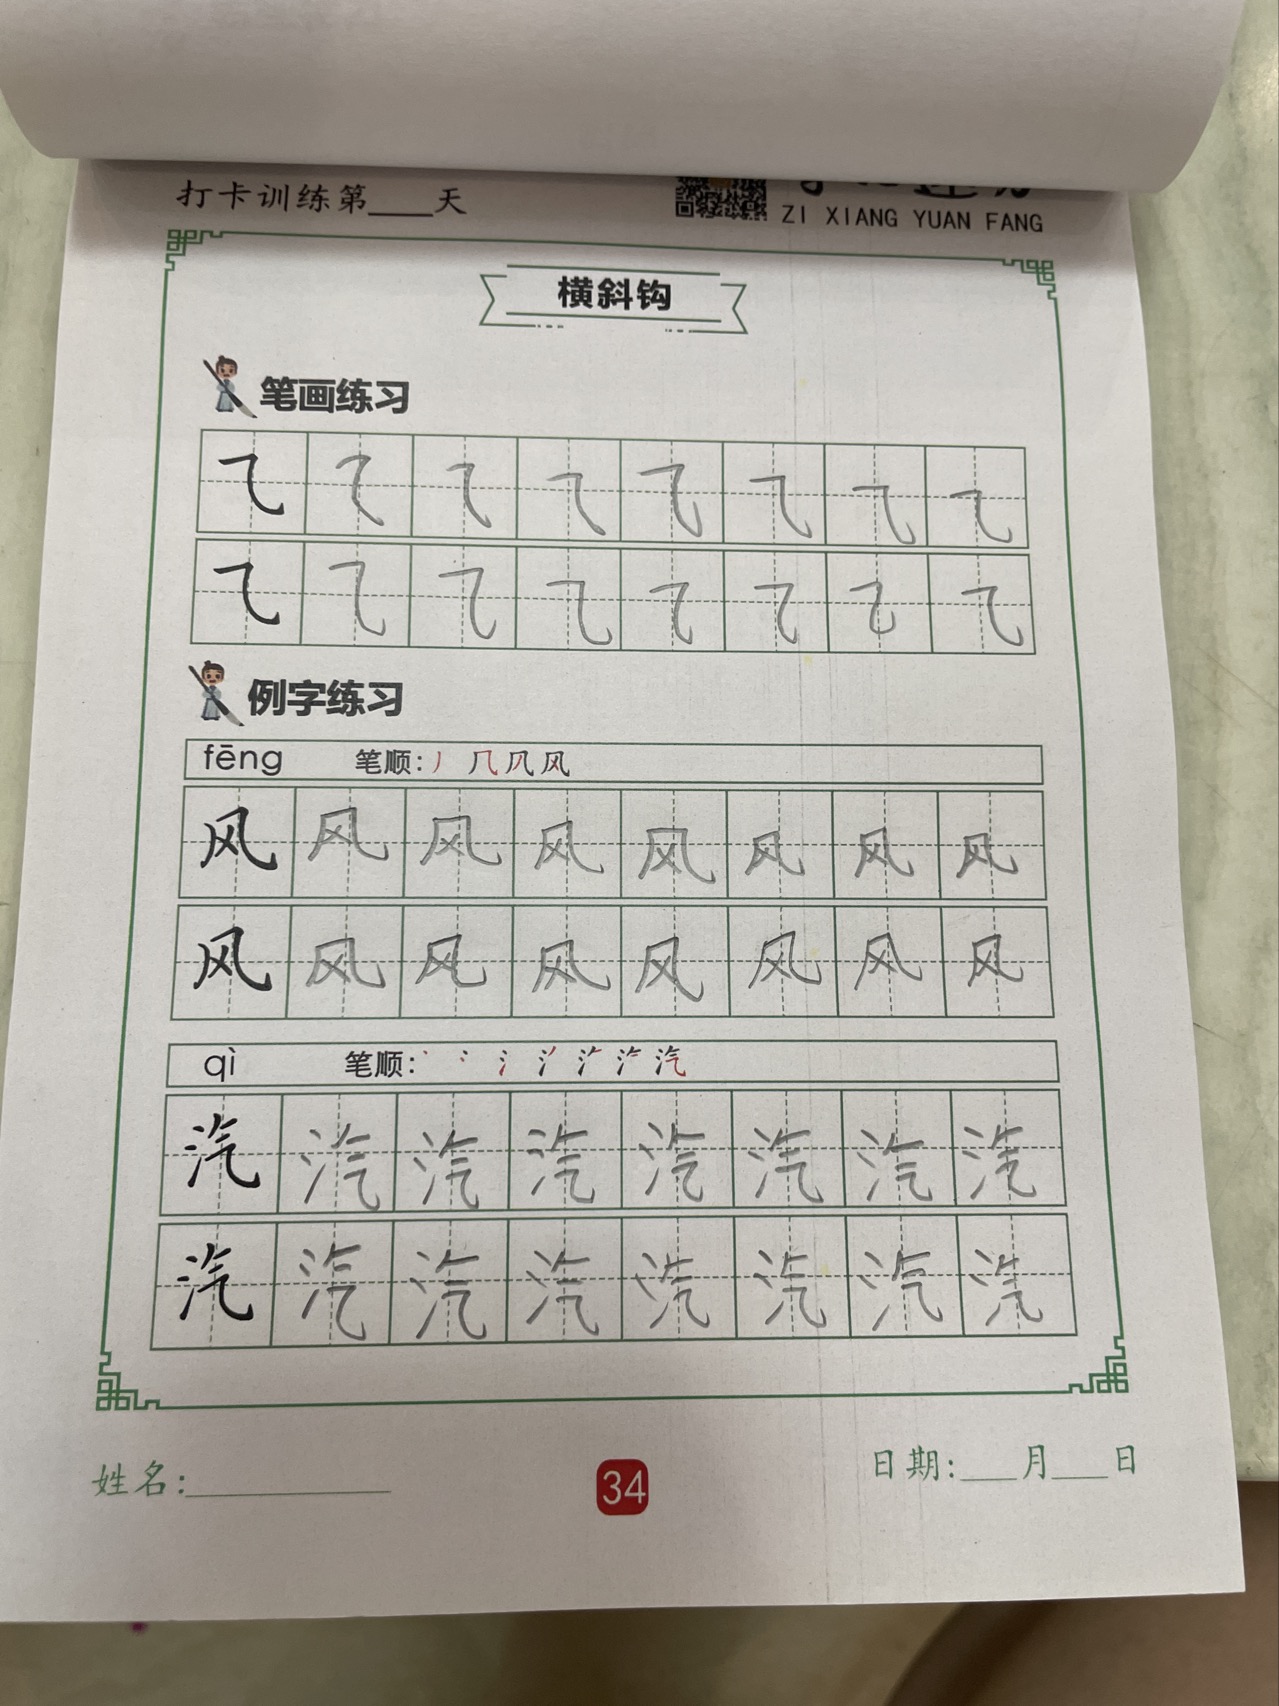 打卡训练第____天
ZI XIANG YUAN FANG
横斜钩
笔画练习
㇈ ㇈ ㇈ ㇈ ㇈ ㇈ ㇈ ㇈
㇈ ㇈ ㇈ ㇈ ㇈ ㇈ ㇈ ㇈
例字练习
fēng 笔顺: 丿 几 凤 风
风 风 风 风 风 风 风 风
风 风 风 风 风 风 风 风
qì 笔顺: 汽
汽 汽 汽 汽 汽 汽 汽 汽
汽 汽 汽 汽 汽 汽 汽 汽
姓名:__________ 34 日期:___月___日